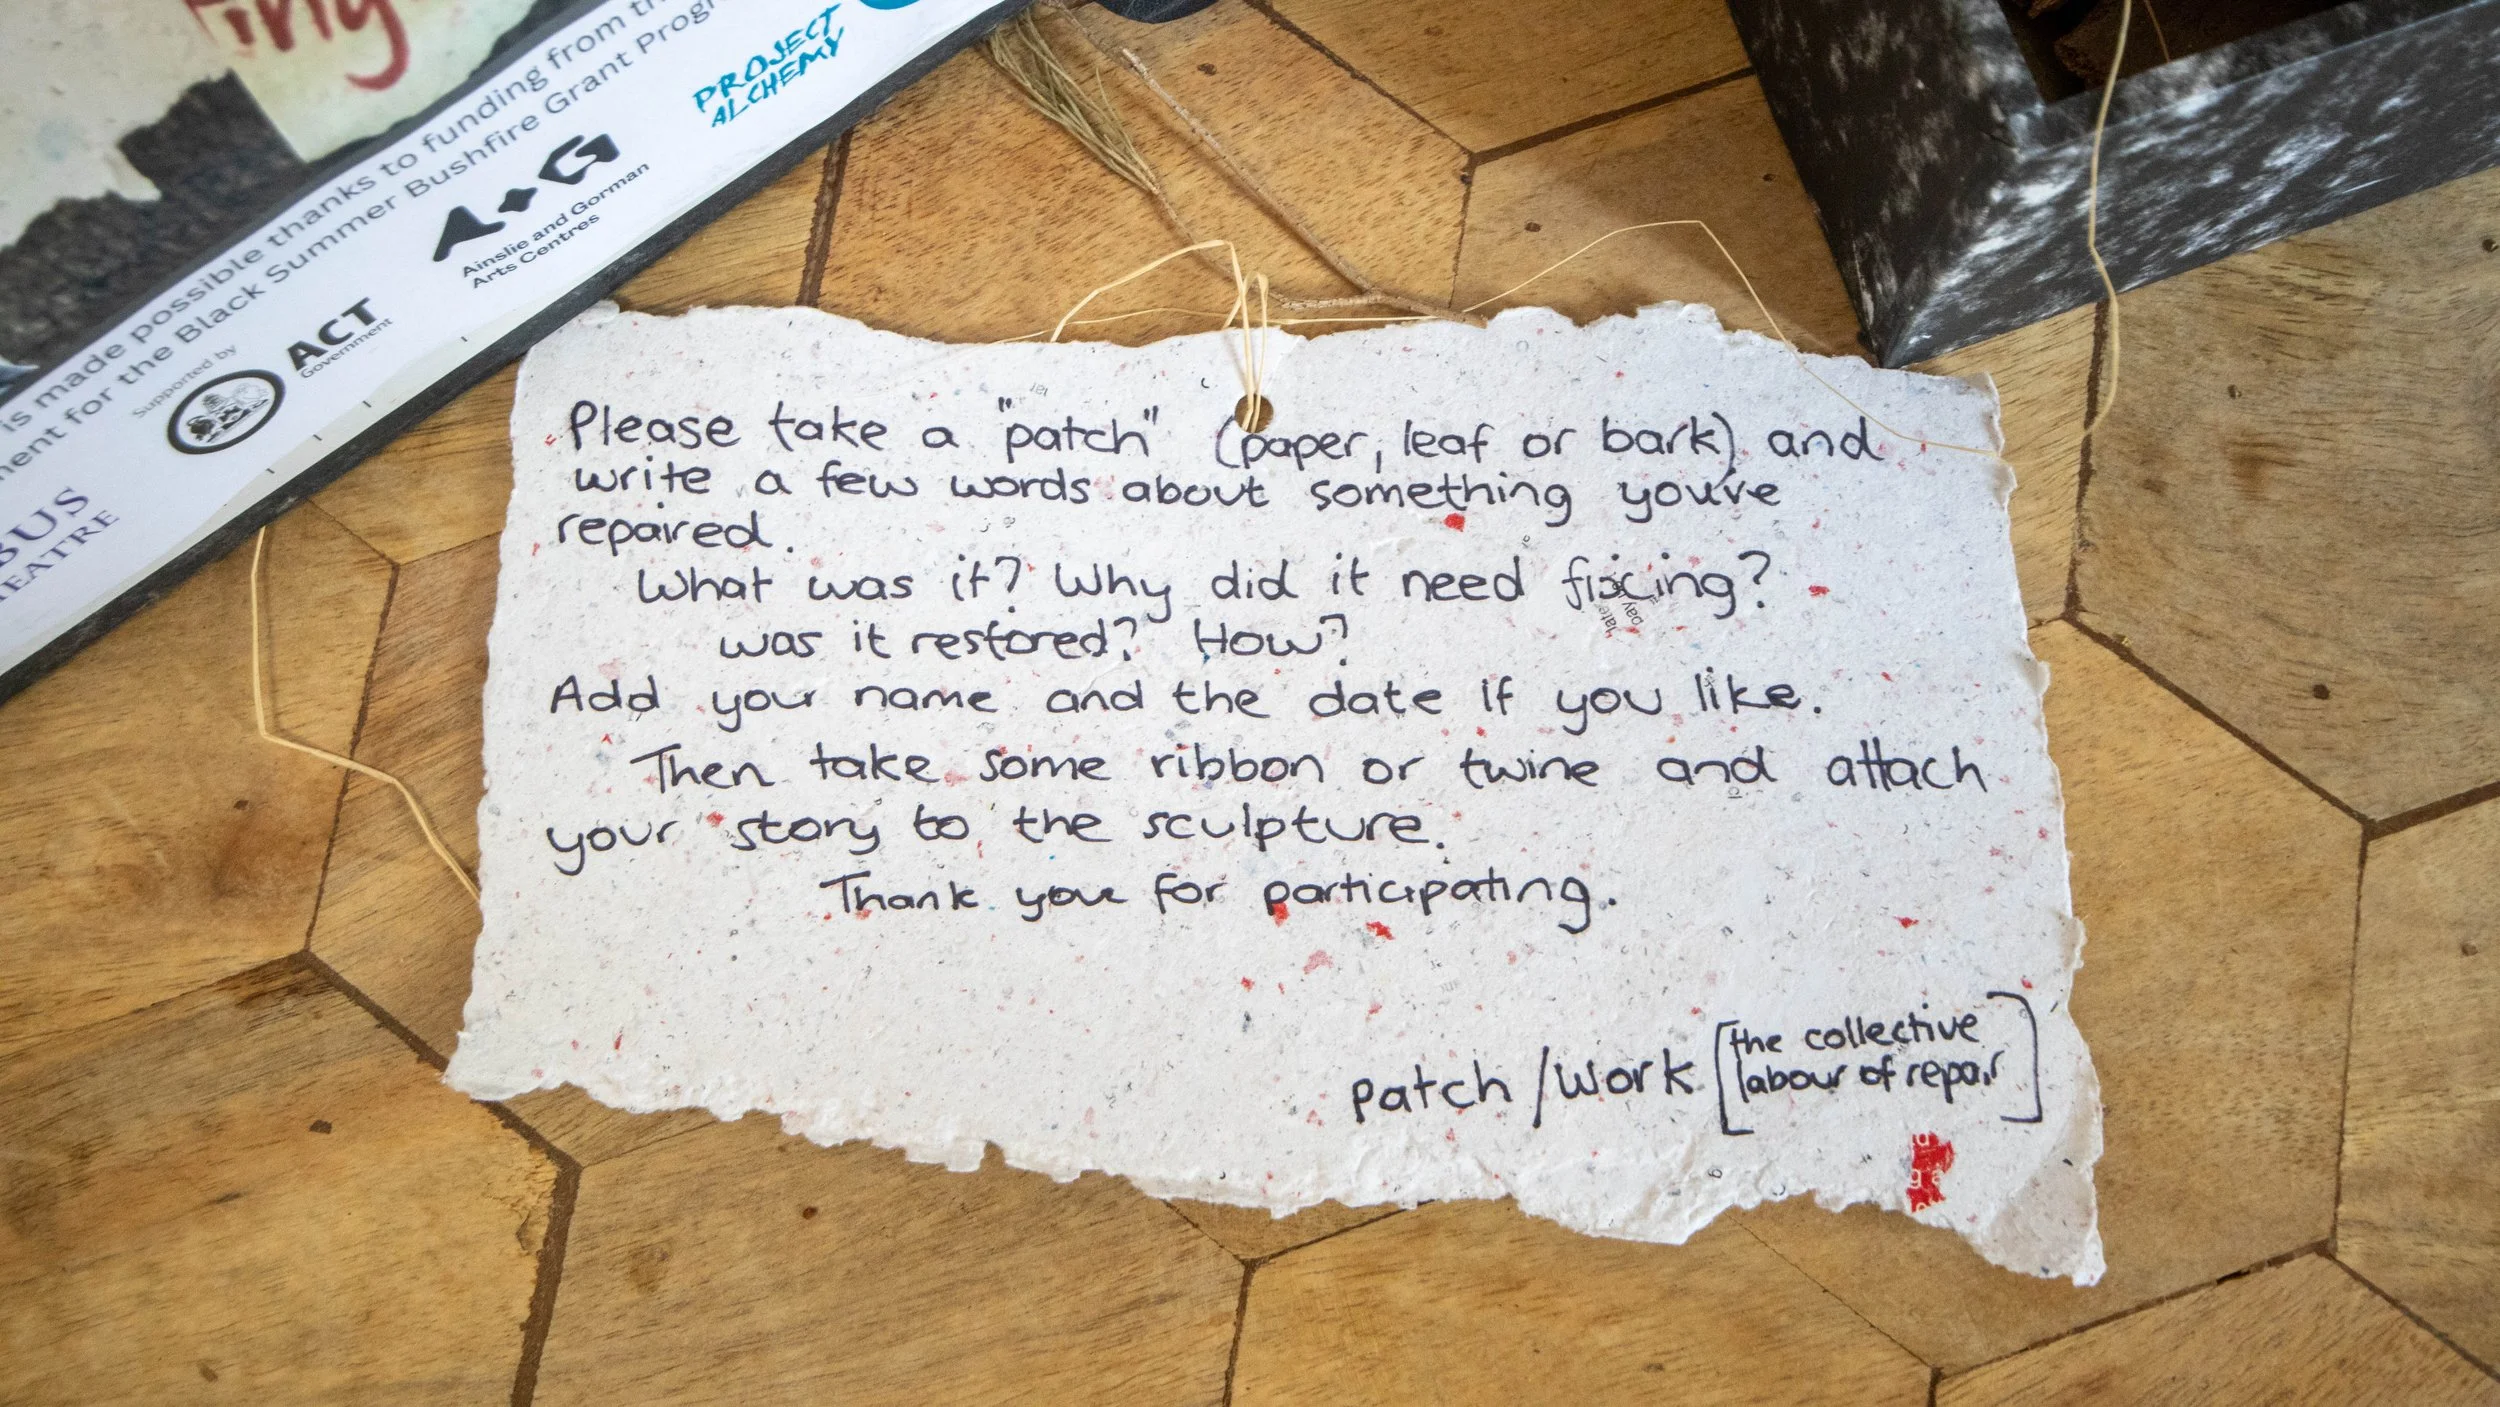 is made possible thanks to funding from
for the Black Summer Bushfire Grant
PROJECT
ALCHEMY
Ainslie and Gorman
Arts Centres
Supported by
ACT
Government
Please take a "patch" (paper, leaf or bark) and
write a few words about something you've
repaired.
What was it? Why did it need fixing?
was it restored? How?
Add your name and the date if you like.
Then take some ribbon or twine and attach
your story to the sculpture.
Thank you for participating.
patch/work [the collective
labour of repair]